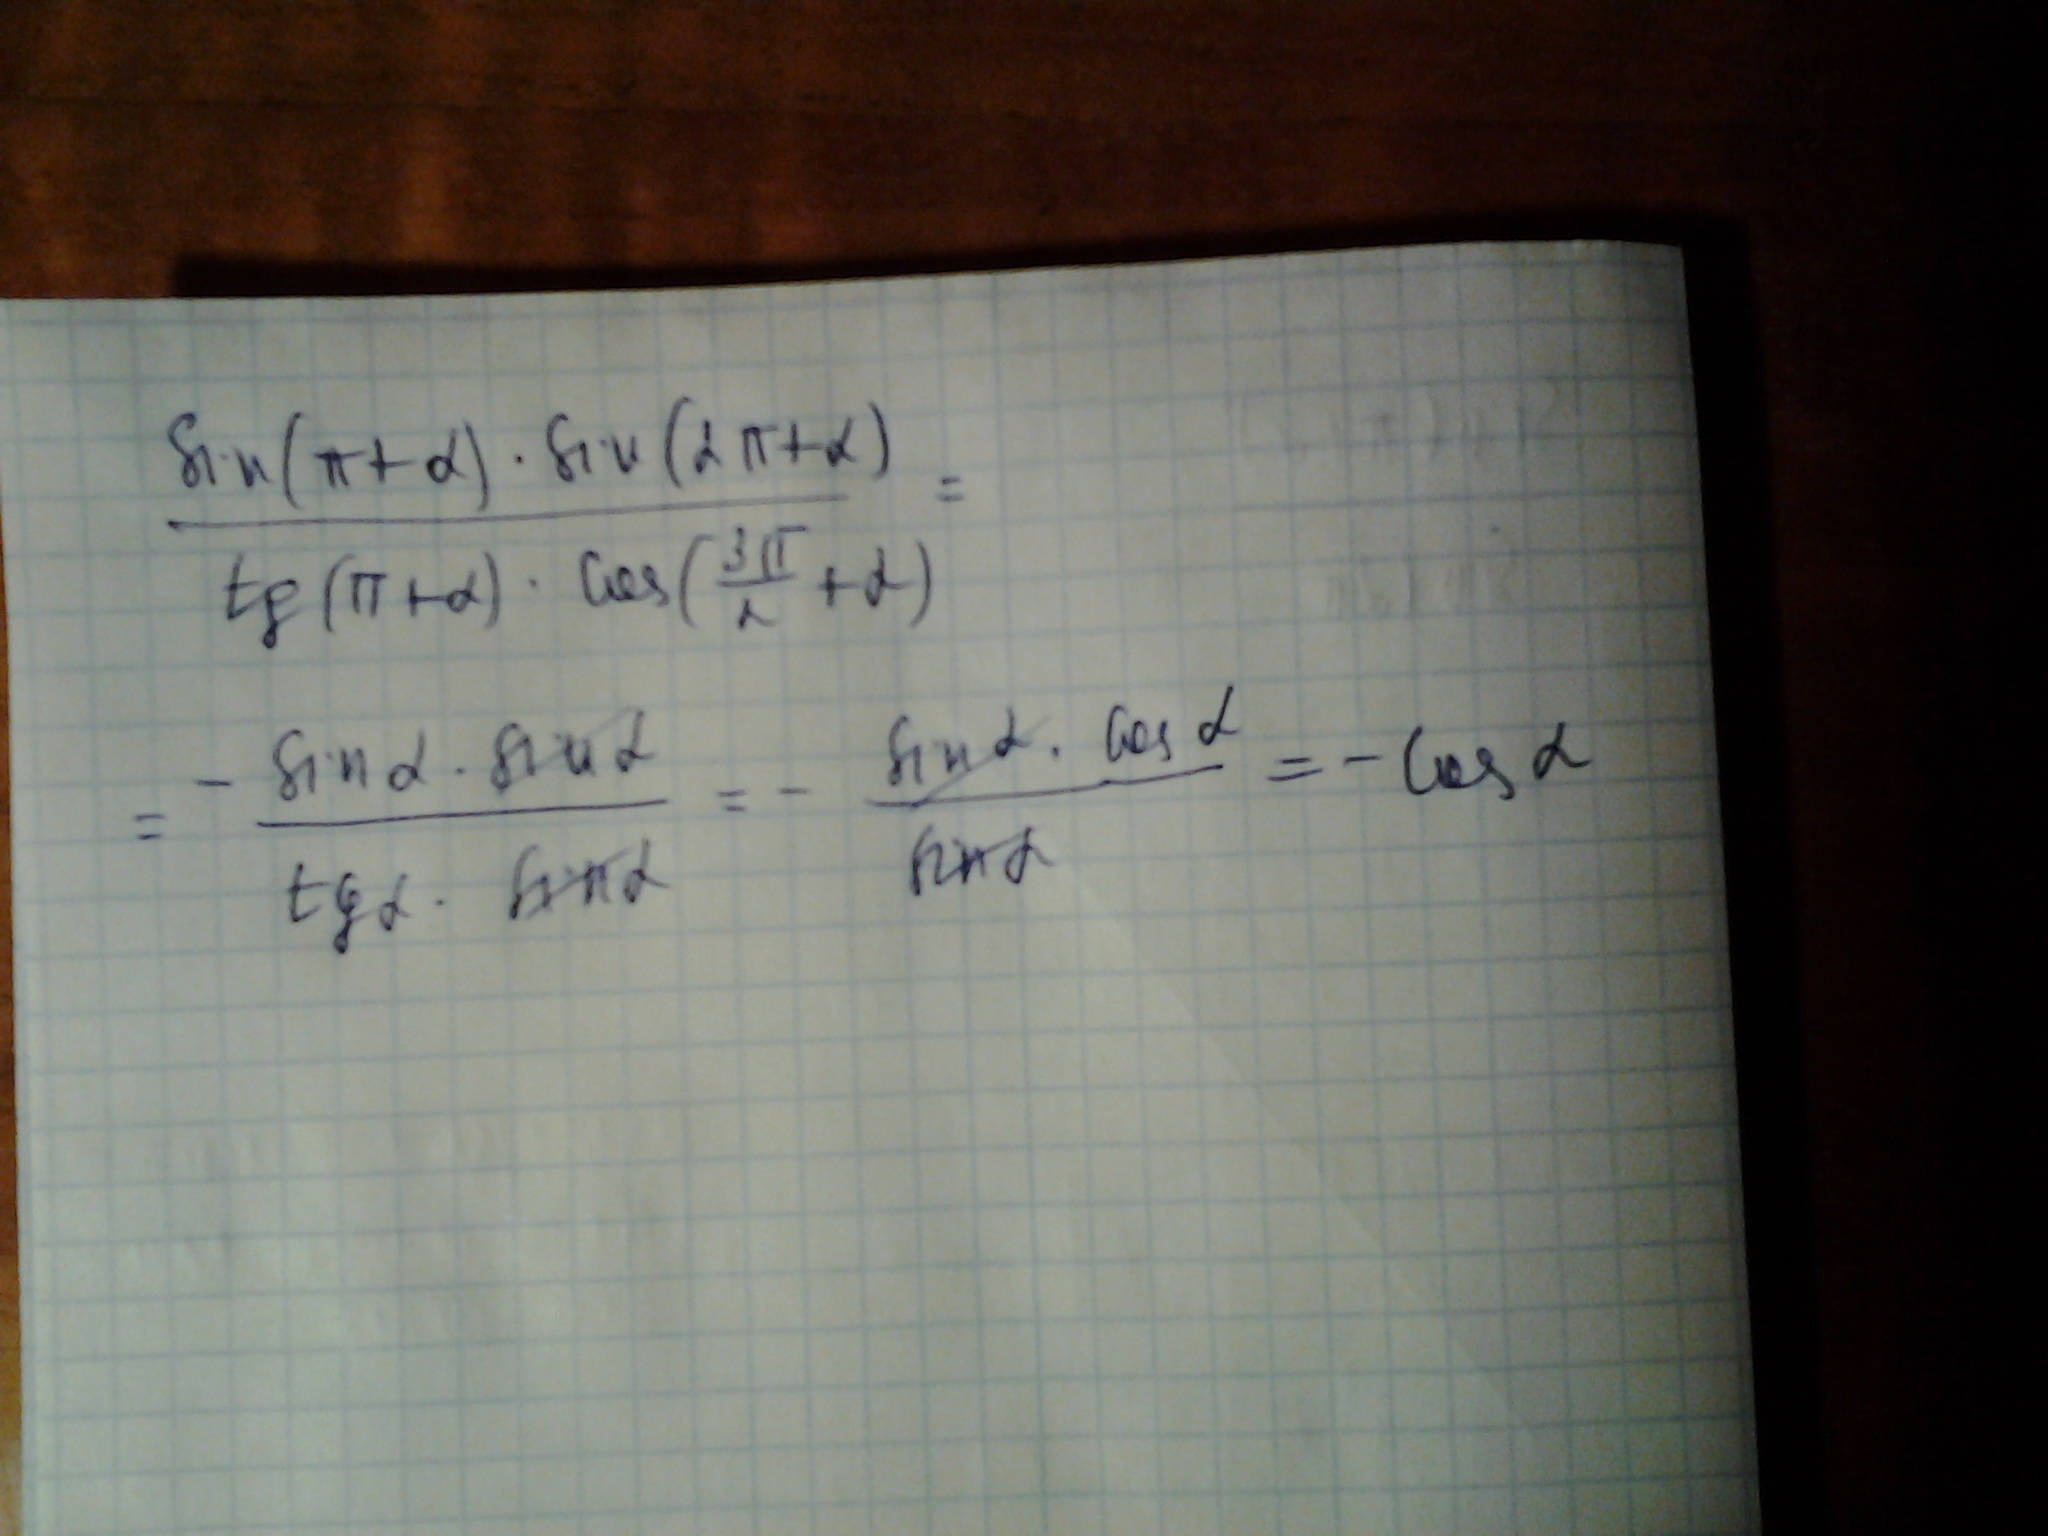 sin(π+α)·sin(2π+α)/tg(π+α)·cos(3π/2+α) =
= - sinα·sinα/tgα·sinα = - sinα·cosα/sinα = - cosα